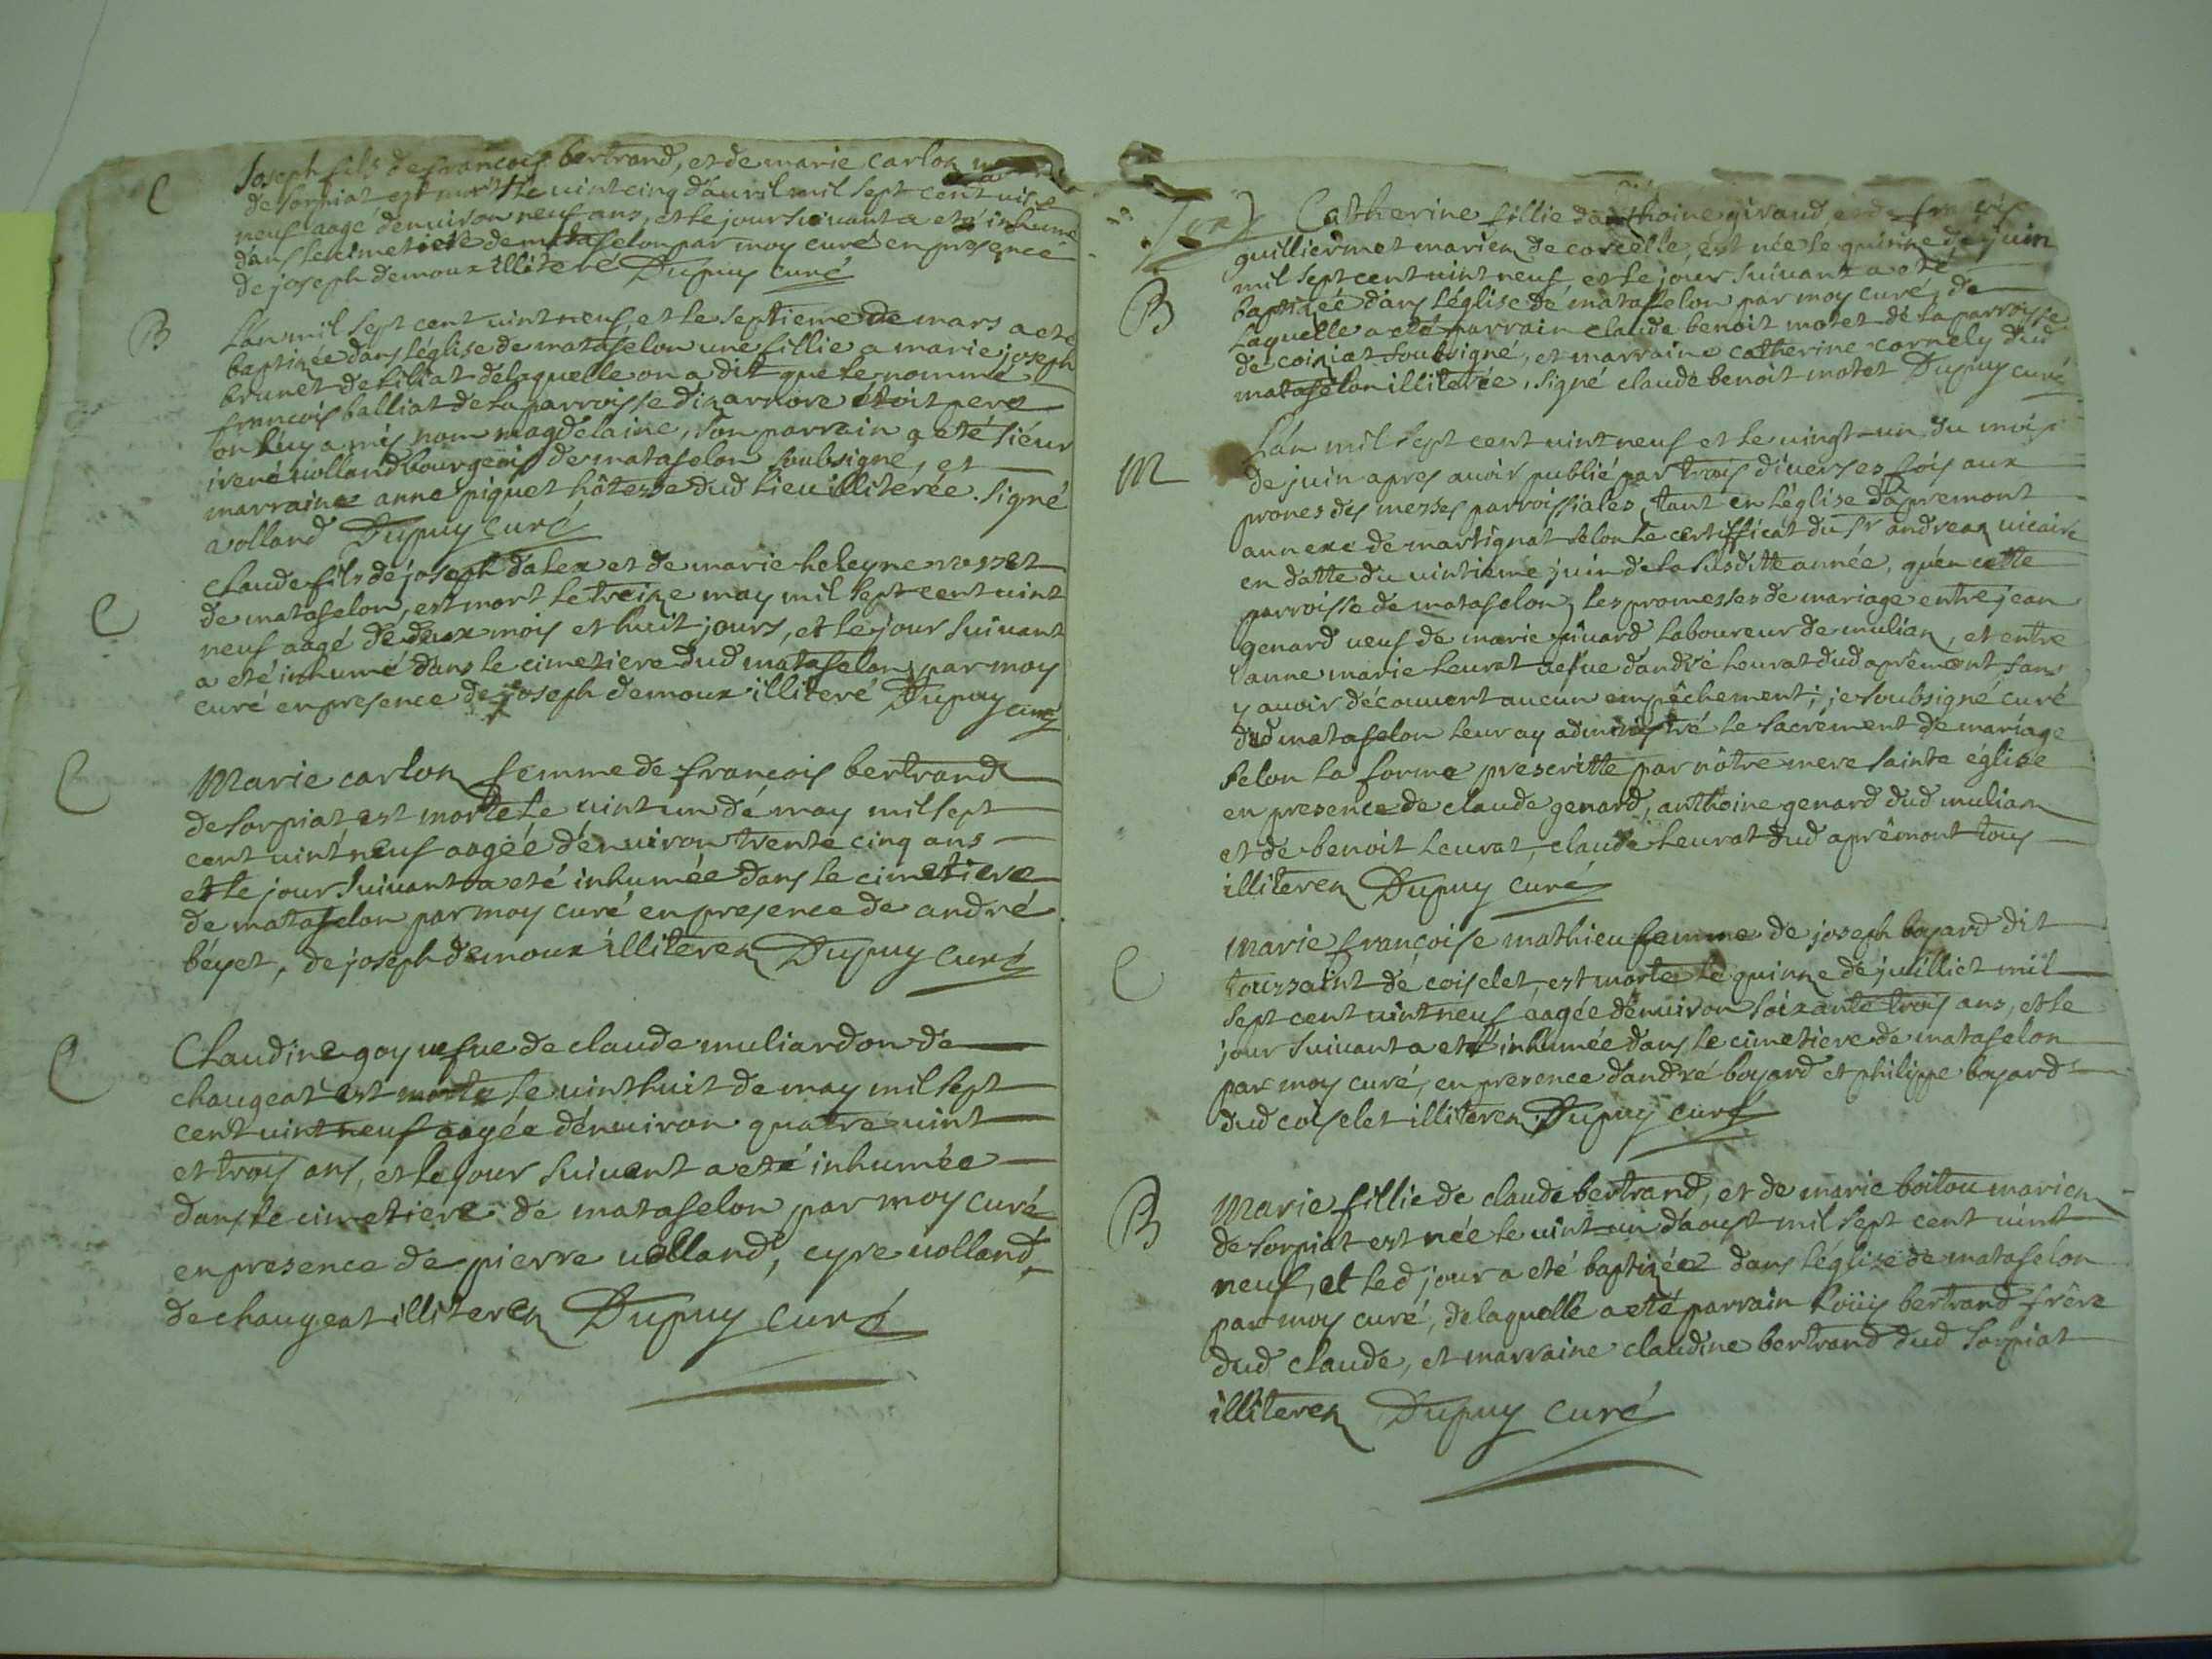 C
Joseph fils de francois bertrand, et de marie carloz
de sorpiat est mort le vint cinq d'avril mil sept cent vint
neuf aagé d'environ neuf ans, et le jour suivant a eté inhumé
dans le cimetiere de matafelon par moy curé en presence
de joseph demoux illiteré Dupuy curé
B
L'an mil sept cent vint neuf, et le septieme de mars a eté
baptizée dans l'église de matafelon une fillie a marie joseph
brunet de siliat de laquelle on a dit que le nommé
francois balliat de la parroisse d'izarnore étoit pere
on luy a mis nom magdelaine, son parrain a eté siéur
irené volland bourgeois de matafelon soubsigné, et
marraine anne piquet hôtesse dud lieu illiterée. signé
volland Dupuy curé
C
claude fils de joseph dalex et de marie heleyne
de matafelon, est mort le treize may mil sept cent vint
neuf aagé de deux mois et huit jours, et le jour suivant
a eté inhumé dans le cimetiere dud matafelon par moy
curé en presence de joseph demoux illiteré Dupuy curé
C
Marie carloz femme de francois bertrand
de sorpiat est morte le vint un de may mil sept
cent vint neuf aagéé d'environ trente cinq ans
et le jour suivant a eté inhumée dans le cimetiere
de matafelon par moy curé en presence de andré
béyet, de joseph demoux illiterez Dupuy curé
C
Claudine goy vefve de claude muliardon de
chaugeat est morte le vint huit de may mil sept
cent vint neuf aagée d'environ quatre vint
et trois ans, et le jour suivent a eté inhumée
dans le cimetiere de matafelon par moy curé
en presence de pierre volland, cyre volland,
de chaugeat illiterez Dupuy curé
B
Catherine fillie d'anthoine givaud et de
guilliermet mariez de corcelle, est née le quinze de juin
mil sept cent vint neuf, et le jour suivant a eté
baptizéé dans l'église de matafelon par moy curé, de
laquelle a eté parrain claude benoit motet de la parroisse
de coiziat soubsigné, et marraine catherine carnely dud
matafelon illiterée, signé claude benoit motet Dupuy curé
M
L'an mil sept cent vint neuf et le vingt-un du mois
de juin apres avoir publié par trois diverses fois aux
prones des messes parroissiales, tant en l'église d'apremont
annexe de martignat selon le certifficat du Sr andrea vicaire
en datte du vintieme juin de la susditte année, qu'en cette
parroisse de matafelon, les promesses de mariage entre jean
genard veuf de marie juvard laboureur de mulian, et entre
anne marie leurat vefve d'andré leurat dud aprêmont, sans
y avoir découvert aucun empêchement; je soubsigné curé
dud matafelon leur ay administré le sacrément de mariage
selon la forme prescritte par nôtre mere sainte église
en presence de claude genard, anthoine genard dud mulian
et de benoit leurat, claude leurat dud aprêmont tous
illiterez Dupuy curé
C
Marie françoise mathieu femme de joseph boyard dit
toussaint de coiselet, est morte le quinze de juilliet mil
sept cent vint neuf aagée d'environ soixante trois ans, et le
jour suivant a eté inhumée dans le cimetiere de matafelon
par moy curé, en presence d'andré boyard et philippe boyard
dud coiselet illiterez Dupuy curé
B
Marie fillie de claude bertrand, et de marie boitou mariez
de sorpiat est née le vint un d'aoust mil sept cent vint
neuf, et led jour a eté baptizéé dans l'église de matafelon
par moy curé, de laquelle a eté parrain Loüis bertrand frêre
dud claude, et marraine claudine bertrand dud sorpiat
illiterez Dupuy curé